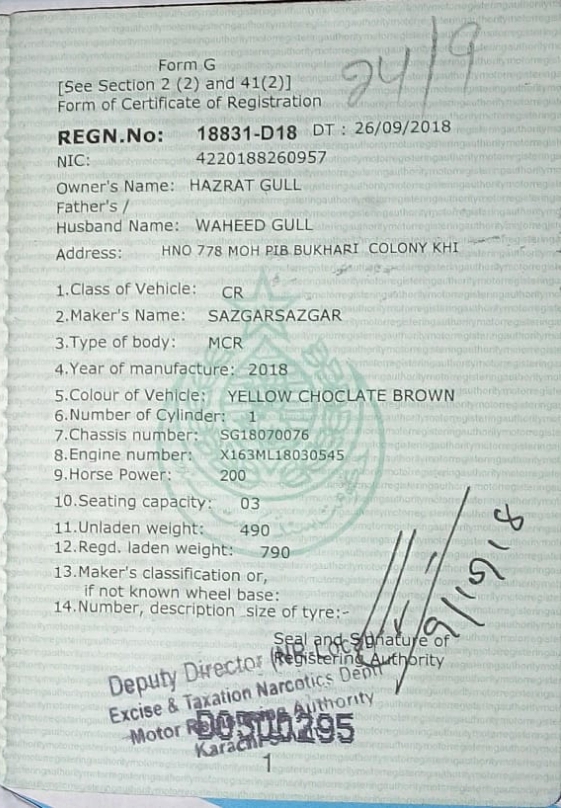 24/9
Form G
[See Section 2 (2) and 41(2)]
Form of Certificate of Registration
REGN.No: 18831-D18 DT : 26/09/2018
NIC: 4220188260957
Owner's Name: HAZRAT GULL
Father's /
Husband Name: WAHEED GULL
Address: HNO 778 MOH PIB BUKHARI COLONY KHI
1.Class of Vehicle: CR
2.Maker's Name: SAZGARSAZGAR
3.Type of body: MCR
4.Year of manufacture: 2018
5.Colour of Vehicle: YELLOW CHOCLATE BROWN
6.Number of Cylinder: 1
7.Chassis number: SG18070076
8.Engine number: X163ML18030545
9.Horse Power: 200
10.Seating capacity: 03
11.Unladen weight: 490
12.Regd. laden weight: 790
13.Maker's classification or,
if not known wheel base:
14.Number, description size of tyre:-
Seal and Signature of
Registering Authority
Deputy Director
Excise & Taxation Narcotics Deptt
Motor Authority
Karachi
1